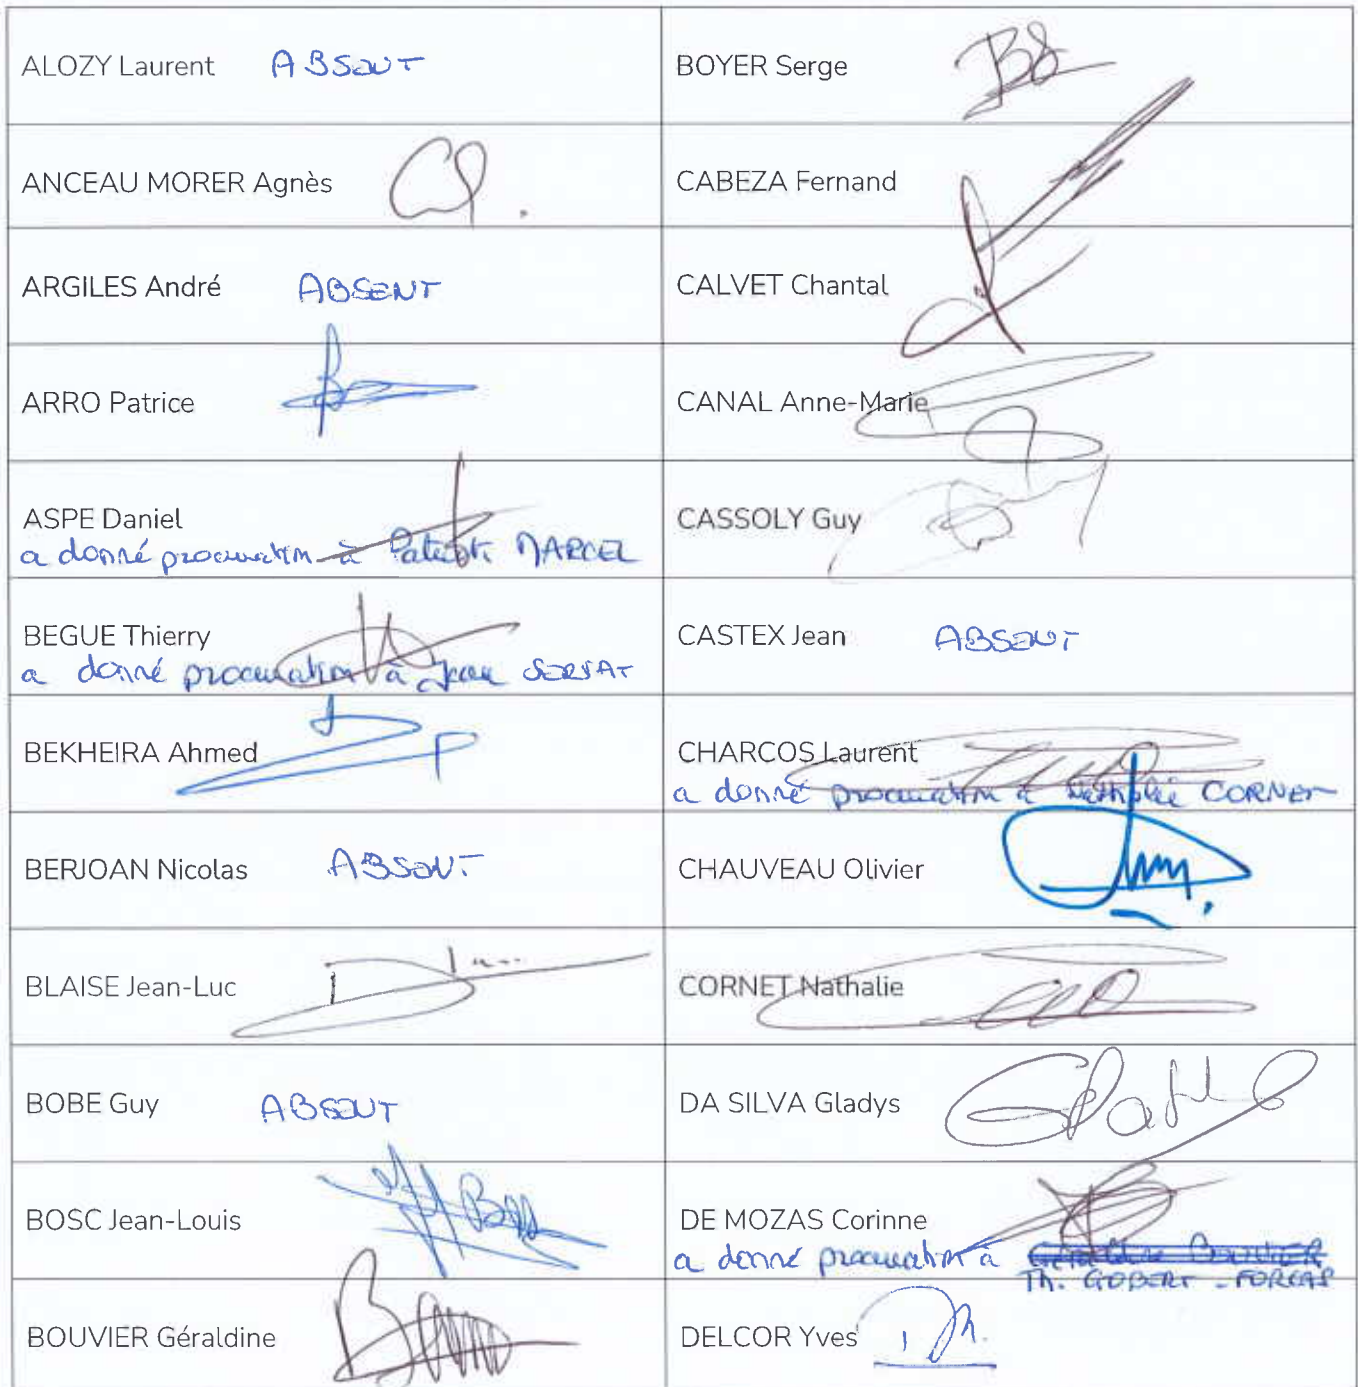 ALOZY Laurent ABSENT
BOYER Serge
ANCEAU MORER Agnès
CABEZA Fernand
ARGILES André ABSENT
CALVET Chantal
ARRO Patrice
CANAL Anne-Marie
ASPE Daniel
a donné procuration à Patrick MARCEL
CASSOLY Guy
BEGUE Thierry
a donné procuration à Jean SERSAT
CASTEX Jean ABSENT
BEKHEIRA Ahmed
CHARCOS Laurent
a donné procuration à Nathalie CORNET
BERJOAN Nicolas ABSENT
CHAUVEAU Olivier
BLAISE Jean-Luc
CORNET Nathalie
BOBE Guy ABSENT
DA SILVA Gladys
BOSC Jean-Louis
DE MOZAS Corinne
a donné procuration à Géraldine BOUVIER
Th. GOBERT-FORGAS
BOUVIER Géraldine
DELCOR Yves